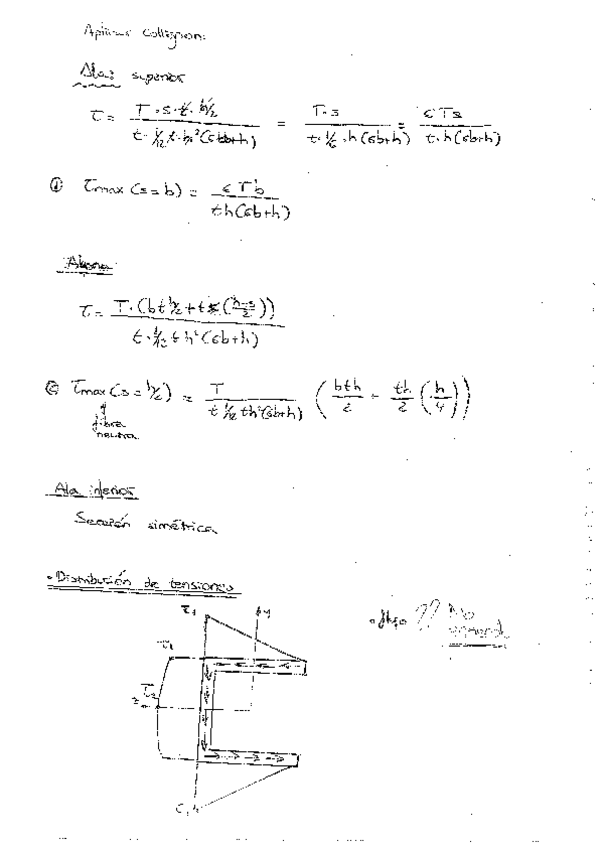 Aplicar Collignon:
Ala: superior
τ = T·s·t·h/2 / t·1/12·t·h²(6b+h) = T·s / t·1/6·h(6b+h) = 6Ts / t·h(6b+h)
① τmax (s=b) = 6Tb / th(6b+h)
Alma
τ = T·(bt h/2 + ts((h-s)/2)) / t·1/12 t h²(6b+h)
② τmax (s=h/2) = T / t 1/12 th²(6b+h) (bth/2 + th/2 (h/4))
fibra
neutra
Ala inferior
Sección simétrica
• Distribución de tensiones
τ1
y
• flujo ?? No
τ1
τ2
z